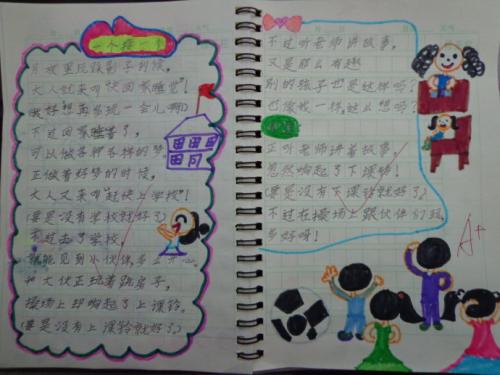 一个接一个
月夜里玩踩影子的时候,
大人就来叫"快回家睡觉"!
我好想再多玩一会儿啊
不过回家睡着了,
可以做各种各样的梦
正做着好梦的时候,
大人又来叫"赶快上学校"!
(要是没有学校就好了)
不过去了学校,
就能见到小伙伴,多
和大伙正玩着跳房子,
操场上却响起了上课铃,
(要是没有上课铃就好了)
不过听老师讲故事,
又是那么有趣
别的孩子也是这样吗?
也像我一样,这么想吗?
正听老师讲着故事,
忽然响起了下课铃!
(要是没有下课铃就好了)
不过在操场上跟伙伴们玩
多好呀!
A+